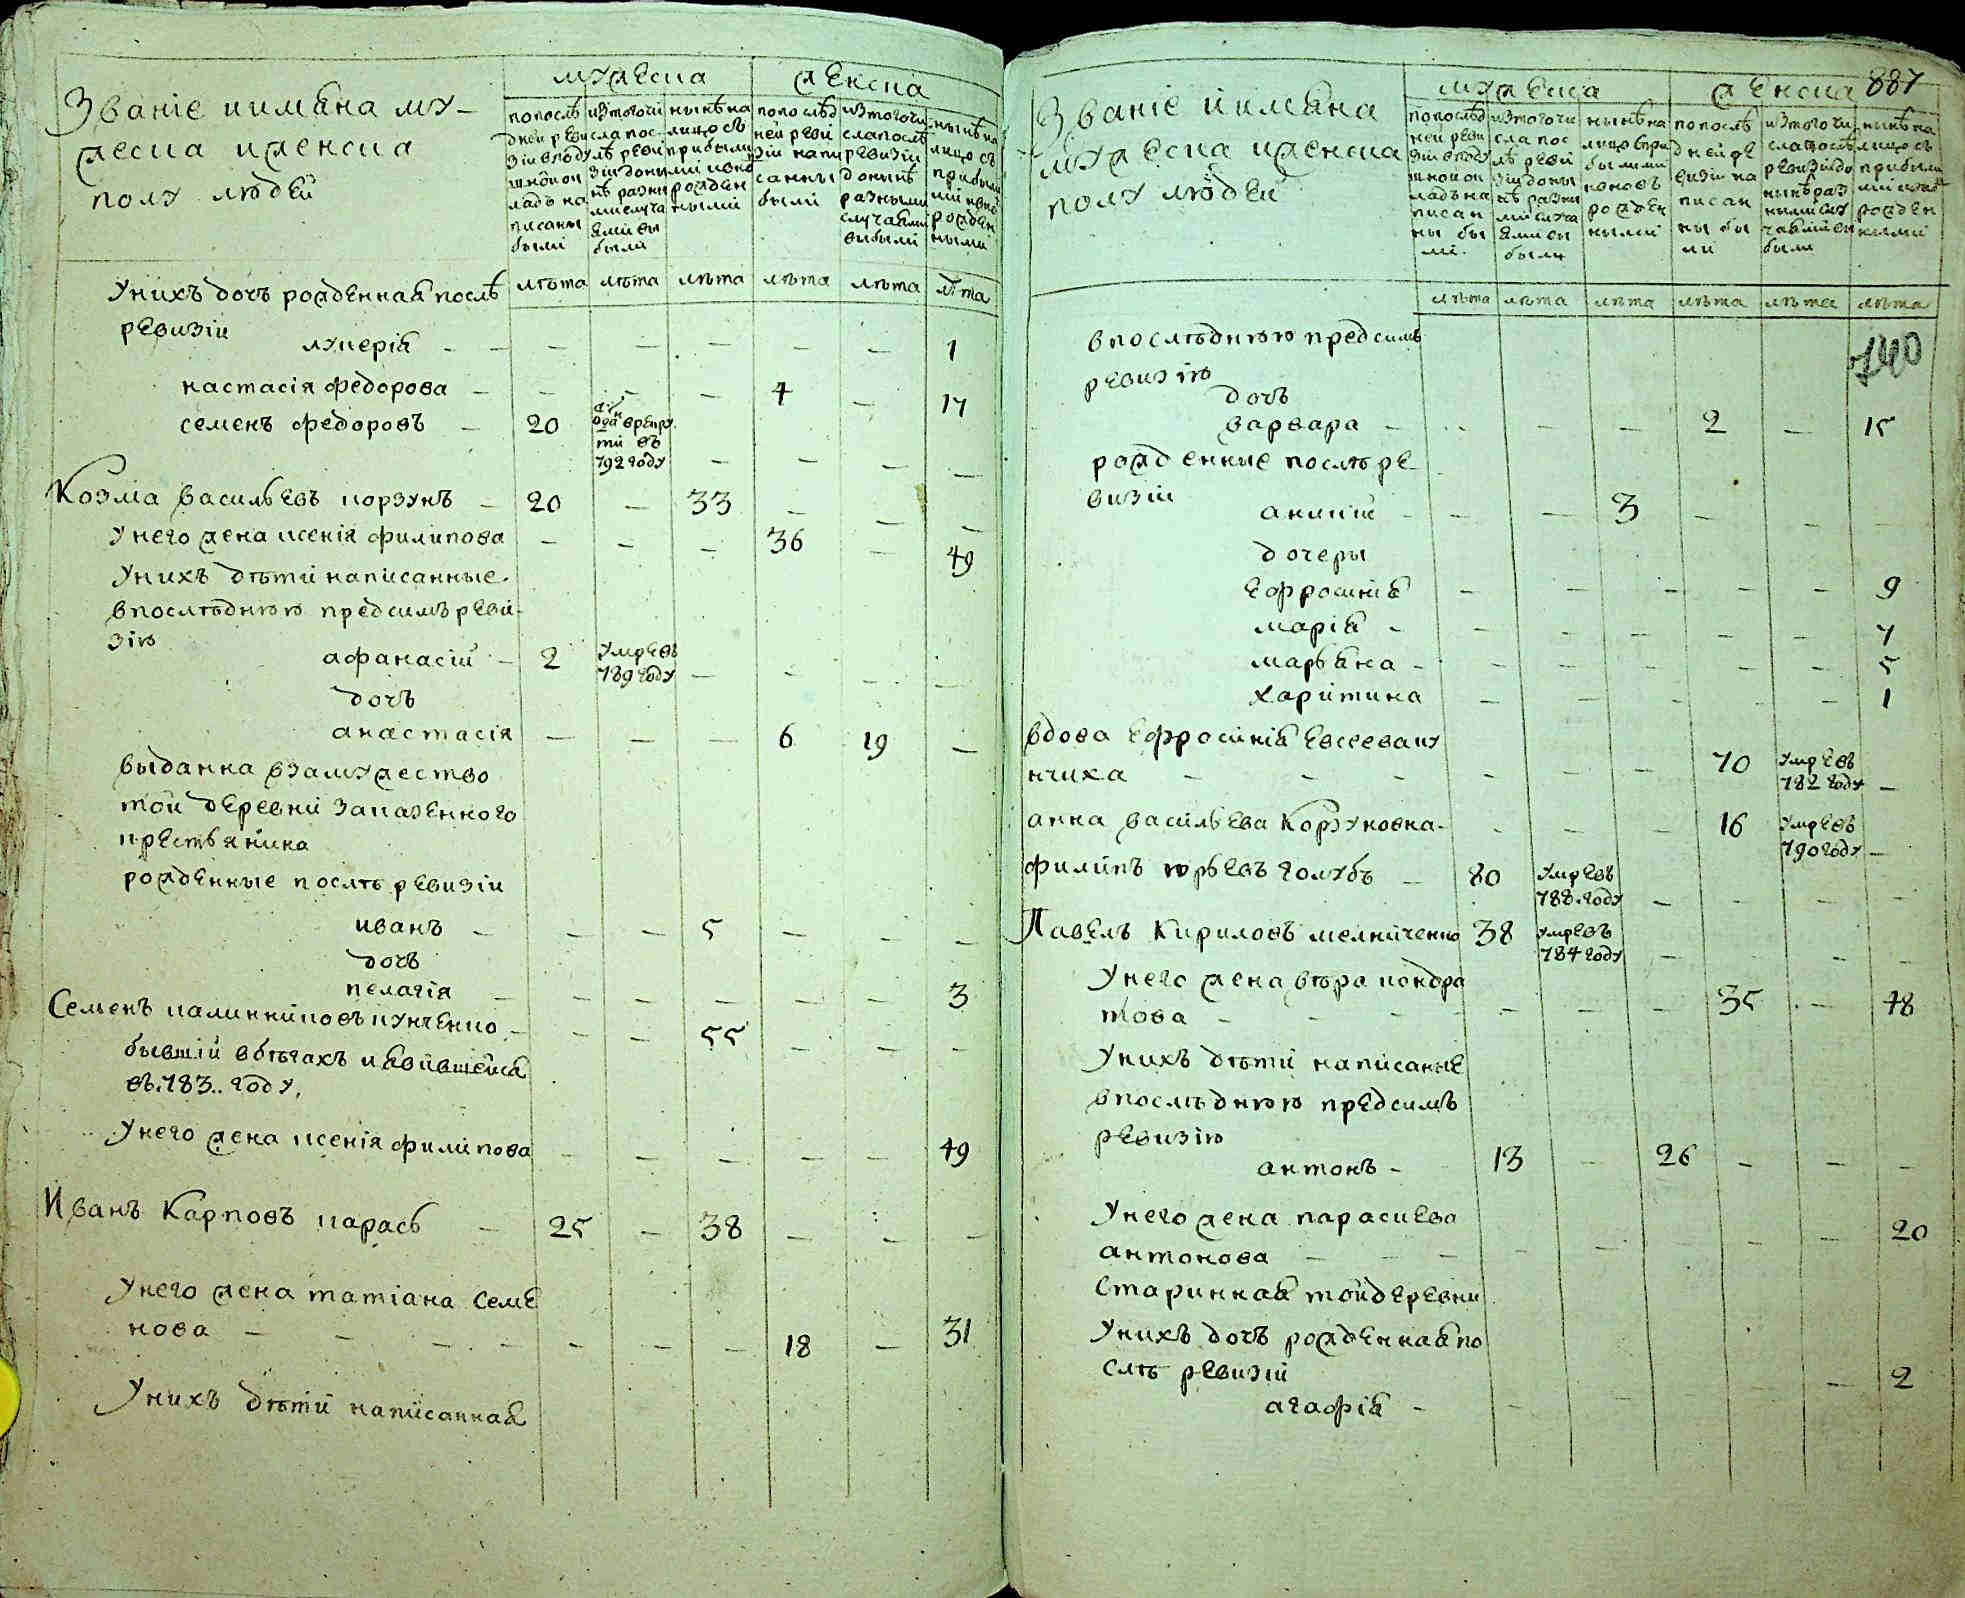 Званіе иимѧна му-
жеска иженска
полу людей
мужеска
женска
попослѣ
дней реви
зіи вподу
шной ок
ладъ на
писаны
были
изтогочи
сла пос-
лѣ реви
зіи доны
нѣ разны
ми случа
ями вы
были
нынѣ на
лицо съ
прибылы
ми ивно
рожден
ными
попослѣд
ней реви
зіи напи
санны
были
изтогочи
сла послѣ
ревизіи
донынѣ
разными
случаями
выбыли
нынѣ на
лицо съ
прибылы
ми ивно
рожден
ными
лѣта лѣта лѣта лѣта лѣта лѣта
Унихъ дочъ рожденная послѣ
ревизіи
лукерія - - - - - - 1
настасія федорова - - - - 4 - 17
семенъ федоровъ - 20
врекру
ти въ
792 году - - - -
Козма васильевъ корзунъ - 20 - 33 - - -
Унего жена ксенія филипова - - - 36 - 49
Унихъ дѣти написанные
впослѣднюю предсимъ реви-
зію
афанасій - 2 умре въ
789 году - - - -
дочъ
анастасія - - - 6 19 -
выданна взамужество
той деревни заказенного
крестьянина
рожденные послѣ ревизіи
иванъ - - - 5 - - -
дочъ
пелагія - - - - - - 3
Семенъ калинниковъ кунченко - - - 55 - - -
бывшій вбѣгахъ иявившейся
въ 783.. году,
Унего жена ксенія филипова - - - - - 49
Иванъ Карповъ карась - 25 - 38 - - -
Унего жена татіана семе
нова - - - - - - - 18 - 31
Унихъ дѣтй написанная
887
Званіе иимѧна
мужеска иженска
полу людей
мужеска
женска
попослѣд
ней реви
зіи вподу
шной ок
ладъ на
писан
ны бы
ли.
изтогочи
сла пос
лѣ реви
зіи доны
нѣ разны
ми случа
ями вы
были
нынѣ на
лицо при
былыми
иновъ
рожден
ными
попослѣ
дней ре
визіи на
писан
ны бы
ли
изтогочи
сла послѣ
ревизіи до
нынѣ раз
ными слу
чаями вы
были
нынѣ на
лицо съ
прибылы
ми ивно
рожден
ными
лѣта лѣта лѣта лѣта лѣта лѣта
740
впослѣднюю предсимъ
ревизію
дочъ
варвара - - - - 2 - 15
рожденные послѣ ре-
визіи
- - 3 - - -
дочеры
ефросинія - - - - - 9
марія - - - - - - 7
марьяна - - - - - - 5
харитина - - - - - 1
вдова Ефросинія Евсеева
нчиха - - - - - - 70 умре въ
782 году -
анна васильева Корзуновна - - - - 16 умре въ
790 году -
филипъ юрьевъ голубъ - 80 умре въ
788. году - - - -
Павелъ Кириловъ мелниченко 38 умре въ
784 году - - - -
Унего жена вѣра кондра
това - - - - - - - 35 - 48
Унихъ дѣти написание
впослѣднюю предсимъ
ревизію
антонъ - 13 - 26 - - -
Унего жена параскева
антонова - - - - - - - - 20
Старинная тойдеревни
Унихъ дочъ рожденная по
слѣ ревизіи
агафія - - - - - - 2